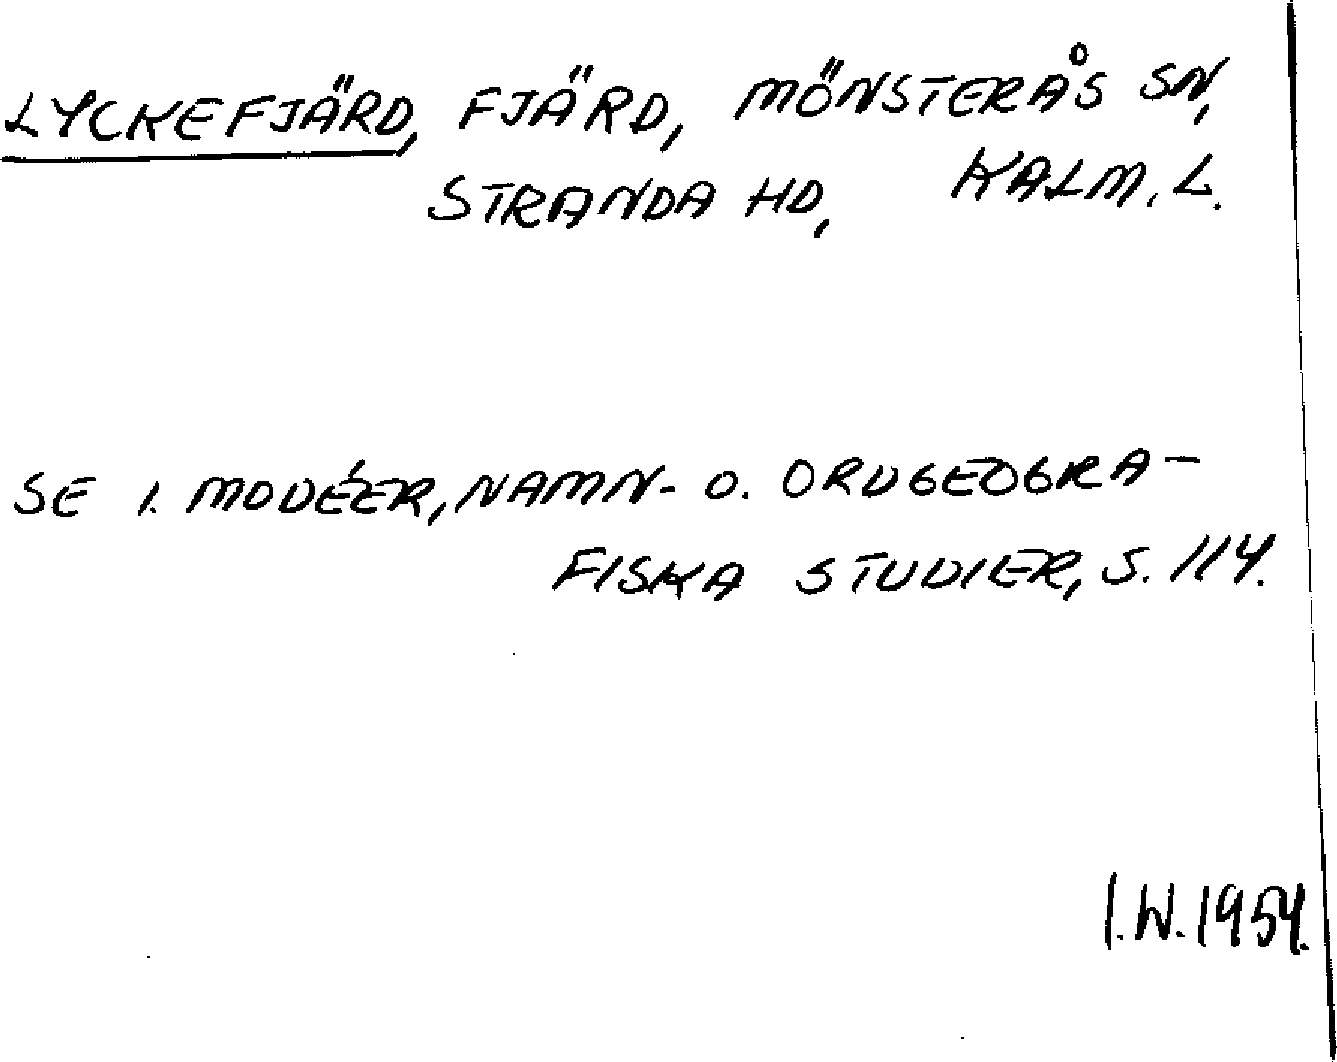 LYCKEFJÄRD, FJÄRD, MÖNSTERÅS SN,
STRANDA HD, KALM. L.
SE I. MODÉER, NAMN- O. ORDGEOGRA-
FISKA STUDIER, S. 114.
I.W. 1954.